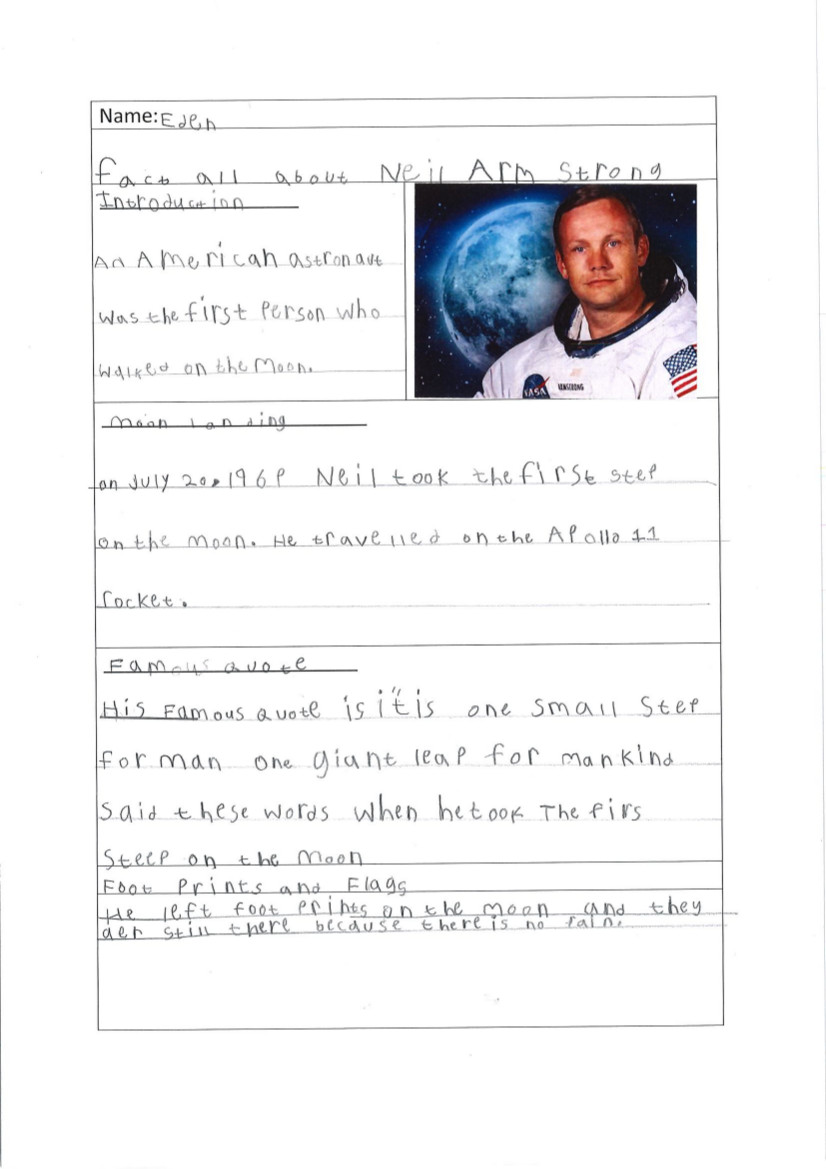 Name: Eden
fact all about Neil Arm Strong
Introduction
An American astronaut
was the first Person who
walked on the Moon.
NASA
ARMSTRONG
moon landing
on JULY 20, 196P Neil took the first step
on the moon. He travelled on the APollo 11
rocket.
Famous quote
His Famous quote is "it is one small step
for man one giant leap for mankind
said these words when he took The firs
Steep on the Moon
Foot Prints and Flags
He left foot prints on the moon and they
aer still there because there is no rain.